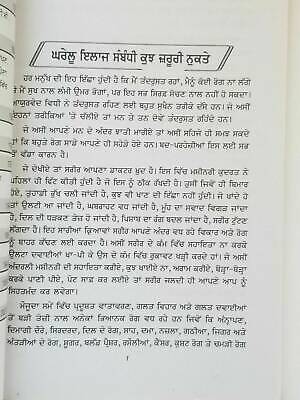 ਘਰੇਲੂ ਇਲਾਜ ਸੰਬੰਧੀ ਕੁਝ ਜ਼ਰੂਰੀ ਨੁਕਤੇ
ਹਰ ਮਨੁੱਖ ਦੀ ਇਹ ਇੱਛਾ ਹੁੰਦੀ ਹੈ ਕਿ ਮੈਂ ਤੰਦਰੁਸਤ ਰਹਾਂ, ਮੈਨੂੰ ਕੋਈ ਰੋਗ ਨਾ ਲੱਗੇ
ਤੇ ਮੈਂ ਸੁਖ ਨਾਲ ਲੰਮੀ ਉਮਰ ਭੋਗਾਂ, ਪਰ ਇਹ ਸਭ ਸਿਰਫ਼ ਸੋਚਣ ਨਾਲ ਨਹੀਂ ਹੋ ਸਕਦਾ।
ਆਯੁਰਵੇਦ ਵਿਚ ਨਿੱਤ ਤੰਦਰੁਸਤ ਰਹਿਣ ਲਈ ਬਹੁਤ ਸੁਖੈਨ ਤਰੀਕੇ ਦੱਸੇ ਹਨ। ਜੇ ਅਸੀਂ
ਇਹਨਾਂ ਤਰੀਕਿਆਂ 'ਤੇ ਚੱਲੀਏ ਤਾਂ ਮਨ ਤੇ ਤਨ ਦੋਵੇਂ ਤੰਦਰੁਸਤ ਰੱਖੇ ਜਾ ਸਕਦੇ ਹਨ।
ਜੇ ਅਸੀਂ ਆਪਣੇ ਮਨ ਦੇ ਅੰਦਰ ਝਾਤੀ ਮਾਰੀਏ ਤਾਂ ਅਸੀਂ ਸਹਿਜੇ ਹੀ ਸਮਝ ਸਕਦੇ
ਹਾਂ ਕਿ ਬਹੁਤੇ ਰੋਗ ਸਾਡੇ ਆਪਣੇ ਹੀ ਸਹੇੜੇ ਹੋਏ ਹਨ। ਬਦ-ਪਰਹੇਜ਼ੀਆਂ ਇਸ ਲਈ ਸਭ
ਤੋਂ ਵੱਡਾ ਕਾਰਨ ਹੈ।
ਜੇ ਦੇਖੀਏ ਤਾਂ ਸਰੀਰ ਆਪਣਾ ਡਾਕਟਰ ਖ਼ੁਦ ਹੈ। ਇਸ ਵਿਚ ਮਸ਼ੀਨਰੀ ਕੁਦਰਤ ਨੇ
ਪਹਿਲਾਂ ਹੀ ਫਿੱਟ ਕੀਤੀ ਹੁੰਦੀ ਹੈ ਜੋ ਇਸ ਨੂੰ ਠੀਕ ਰੱਖਦੀ ਹੈ। ਤੁਸੀਂ ਜਿਵੇਂ ਹੀ ਬਿਮਾਰ
ਹੋਏ, ਤੁਹਾਡੀ ਭੁੱਖ ਚਲੀ ਜਾਂਦੀ ਹੈ, ਕੁਝ ਵੀ ਖਾਣ ਦੀ ਇੱਛਾ ਨਹੀਂ ਹੁੰਦੀ। ਜੇ ਖਾਂਦੇ ਹੋ
ਤਾਂ ਉਲਟੀ ਆ ਜਾਂਦੀ ਹੈ, ਘਬਰਾਹਟ ਵਧ ਜਾਂਦੀ ਹੈ, ਮੂੰਹ ਦਾ ਸਵਾਦ ਵਿਗੜ ਜਾਂਦਾ
ਹੈ, ਦਿਲ ਦੀ ਧੜਕਣ ਤੇਜ਼ ਹੋ ਜਾਂਦੀ ਹੈ, ਪਿਸ਼ਾਬ ਦਾ ਰੰਗ ਬਦਲ ਜਾਂਦਾ ਹੈ, ਸਰੀਰ ਟੁੱਟਣ
ਲੱਗਦਾ ਹੈ। ਇਹ ਸਾਰੀਆਂ ਕਿਰਿਆਵਾਂ ਸਰੀਰ ਆਪਣੇ ਅੰਦਰ ਵਧ ਰਹੇ ਵਿਕਾਰ ਅਤੇ ਰੋਗ
ਨੂੰ ਬਾਹਰ ਕੱਢਣ ਲਈ ਕਰਦਾ ਹੈ। ਅਸੀਂ ਸਰੀਰ ਦੇ ਕੰਮ ਵਿਚ ਸਹਾਇਤਾ ਨਾ ਕਰਕੇ
ਉਲਟਾ ਦਵਾਈਆਂ ਖਾ-ਪੀ ਕੇ ਉਸ ਦੇ ਕੰਮ ਵਿਚ ਰੁਕਾਵਟ ਖੜ੍ਹੀ ਕਰਦੇ ਹਾਂ। ਜੇ ਅਸੀਂ
ਅੰਦਰਲੀ ਮਸ਼ੀਨਰੀ ਦੀ ਸਹਾਇਤਾ ਕਰੀਏ, ਕੁਝ ਖਾਈਏ ਨਾ, ਅਰਾਮ ਕਰੀਏ, ਥੋੜ੍ਹਾ-ਥੋੜ੍ਹਾ
ਕਰਕੇ ਪਾਣੀ ਪੀਏ, ਪੇਟ ਸਾਫ਼ ਕਰ ਲਈਏ ਤਾਂ ਸਰੀਰ ਜਲਦੀ ਹੀ ਆਪਣੇ ਆਪ ਨੂੰ
ਸਿਹਤਮੰਦ ਕਰ ਲਵੇਗਾ।
ਮੌਜੂਦਾ ਸਮੇਂ ਵਿੱਚ ਪ੍ਰਦੂਸ਼ਤ ਵਾਤਾਵਰਣ, ਗਲਤ ਵਿਹਾਰ ਅਤੇ ਗਲਤ ਦਵਾਈਆਂ
ਤੇ ਬੜੀ ਤੇਜ਼ੀ ਨਾਲ ਅਨੇਕਾਂ ਭਿਆਨਕ ਰੋਗ ਵਧ ਰਹੇ ਹਨ ਜਿਵੇਂ ਕਿ ਅੰਨ੍ਹਾਪਣ,
ਦਿਮਾਗੀ ਦੌਰੇ, ਸਿਰਦਰਦ, ਦਿਲ ਦੇ ਰੋਗ, ਸਾਹ, ਦਮਾ, ਨਜ਼ਲਾ, ਗਠੀਆ, ਜਿਗਰ ਅਤੇ
ਅੰਤੜੀਆਂ ਦੇ ਰੋਗ, ਸ਼ੂਗਰ, ਬਲੱਡ ਪ੍ਰੈਸ਼ਰ, ਰਸੌਲੀਆਂ, ਕੈਂਸਰ, ਕੁਸ਼ਟ ਰੋਗ ਤੇ ਚਮੜੀ ਰੋਗ
1